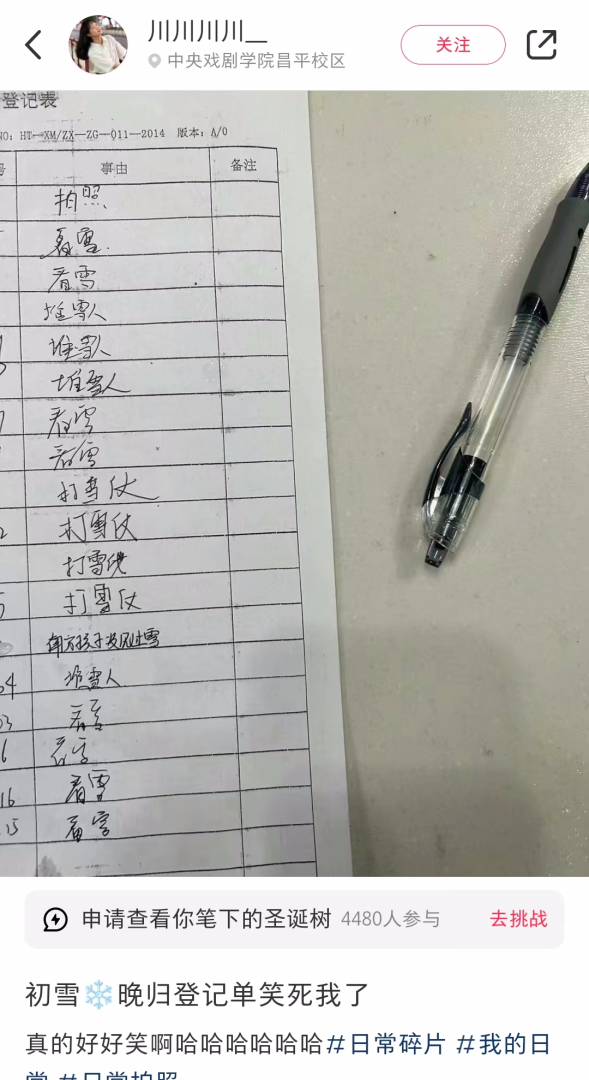 川川川川__
中央戏剧学院昌平校区
关注
登记表
NO: HT—XM/ZX—ZG—011—2014 版本: A/0
号 事由 备注
拍照
看雪
看雪
堆雪人
堆雪人
堆雪人
看雪
看雪
打雪仗
2 打雪仗
打雪仗
5 打雪仗
南方孩子没见过雪
04 堆雪人
03 看雪
6 看雪
16 看雪
15 看雪
申请查看你笔下的圣诞树 4480人参与 去挑战
初雪❄️晚归登记单笑死我了
真的好好笑啊哈哈哈哈哈哈哈#日常碎片 #我的日
常 #日常拍照